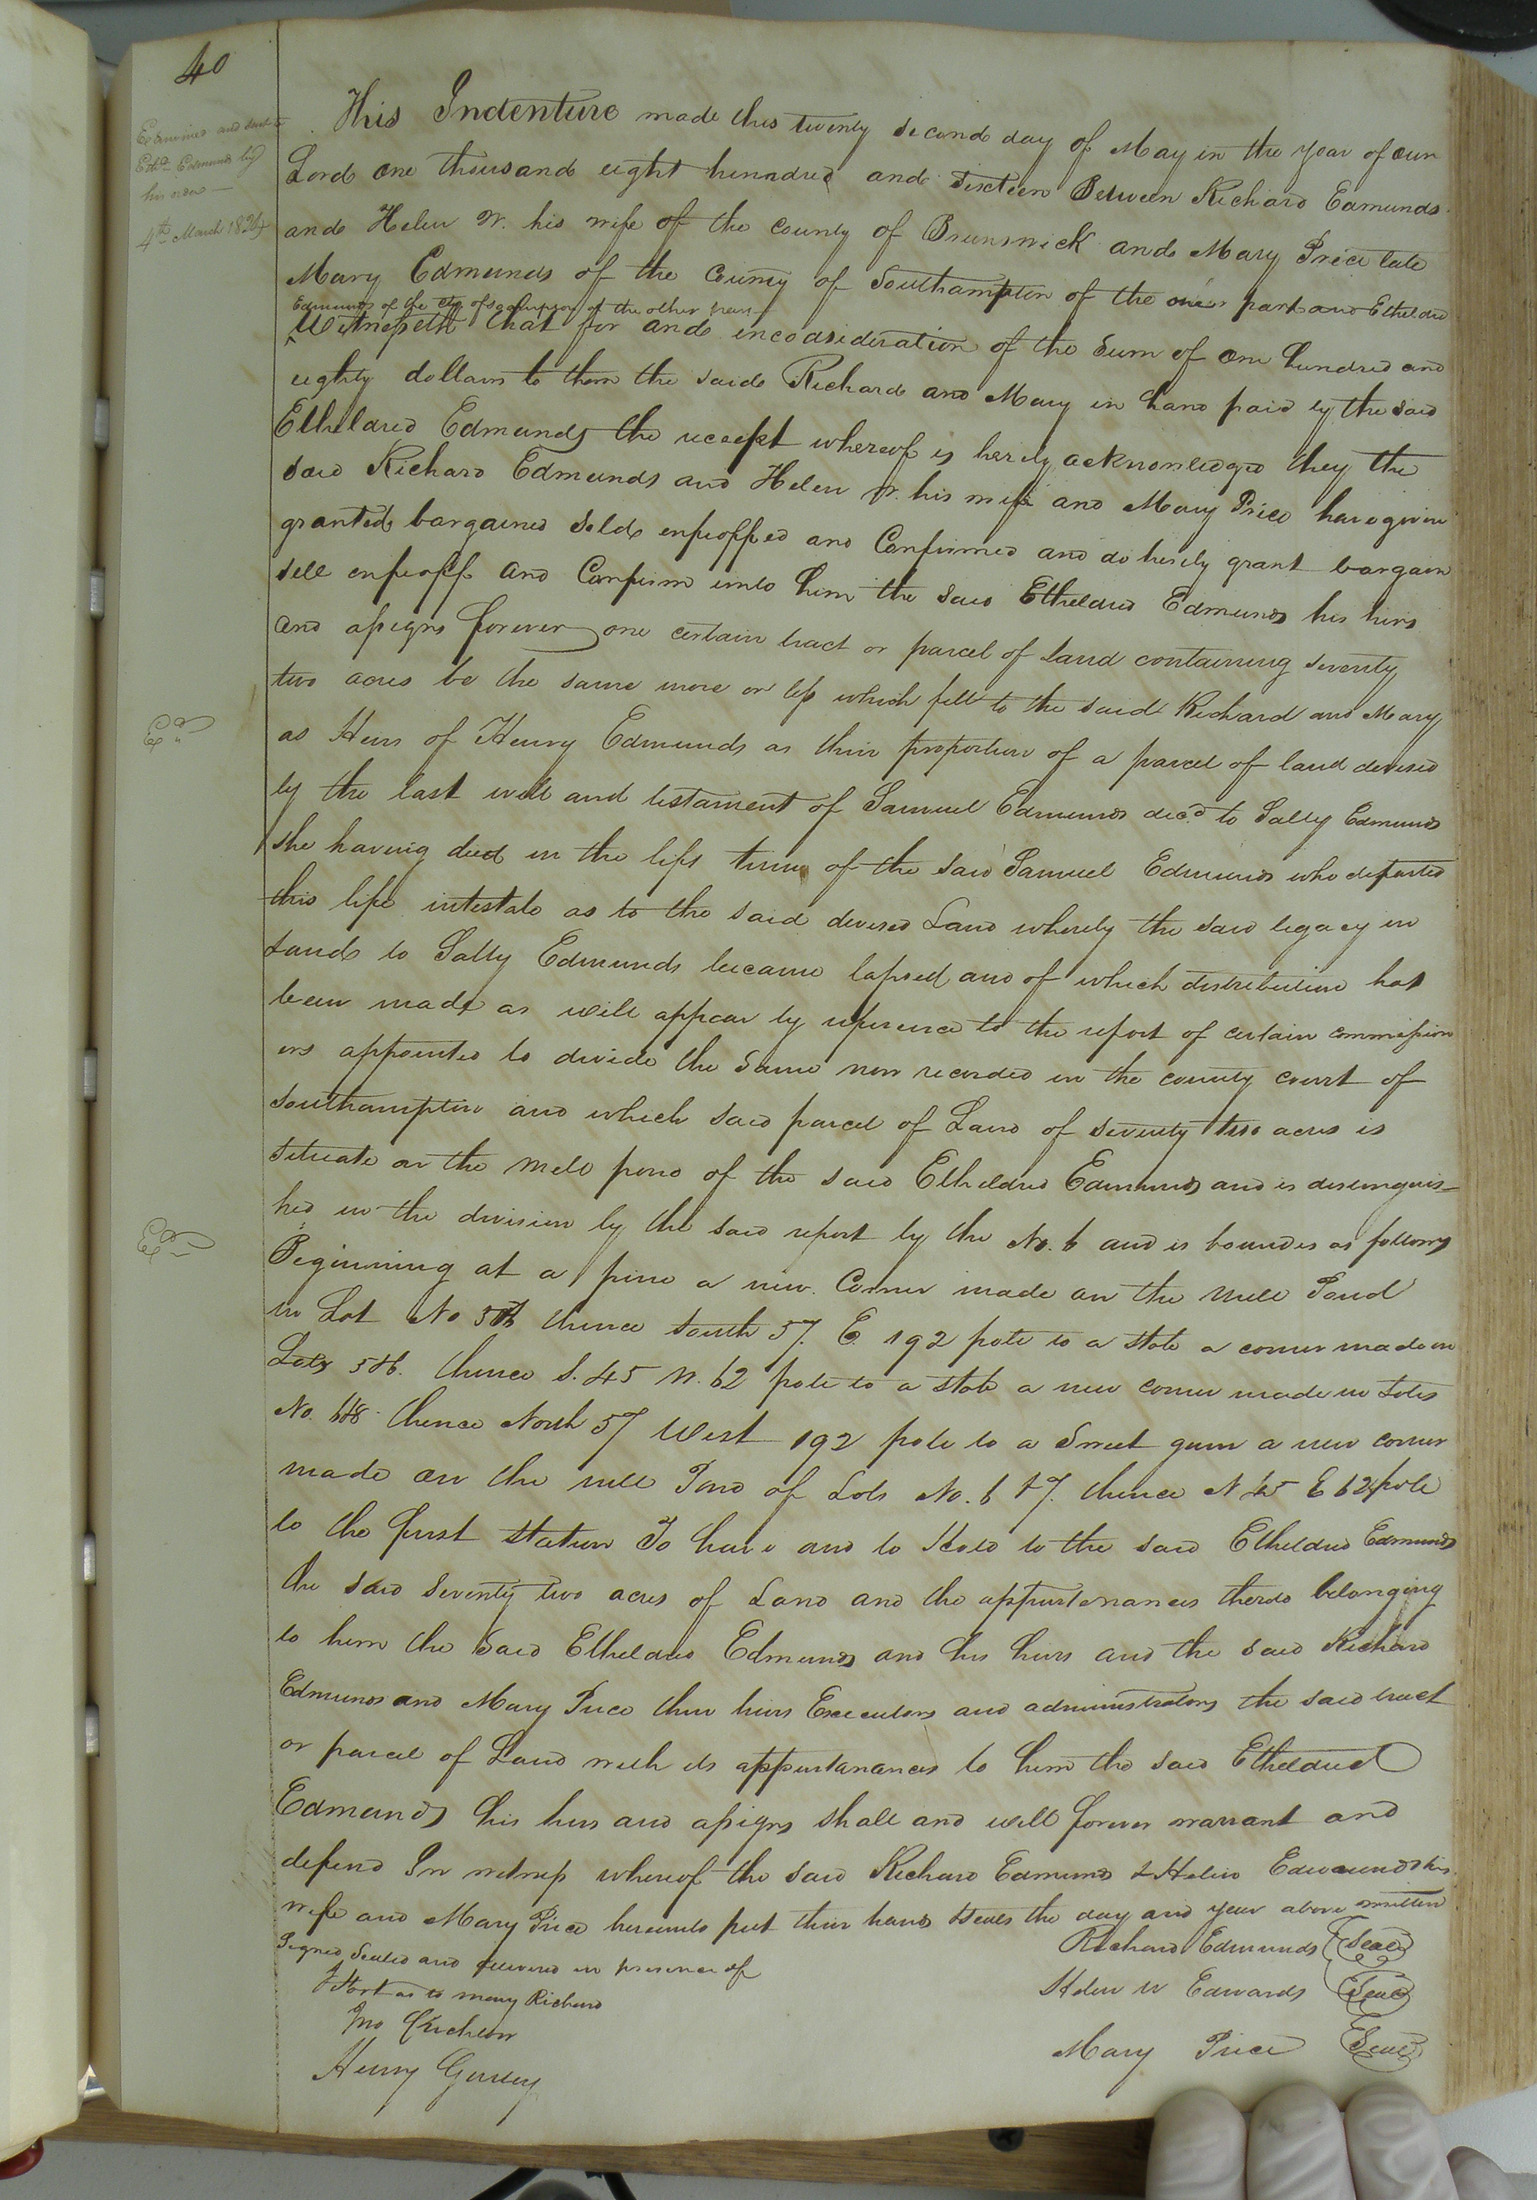 40
Examined and sent to
Ethd. Edmunds by
his son
4th March 1826
This Indenture made this twenty second day of May in the year of our
Lord one thousand eight hundred and sixteen Between Richard Edmunds
and Helen W. his wife of the county of Brunswick and Mary Price late
Mary Edmunds of the County of Southampton of the one part and Etheldred
Edmunds of the Cty of Southampton of the other part
Witnesseth that for and inconsideration of the Sum of one hundred and
eighty dollars to them the said Richard and Mary in hand paid by the said
Etheldred Edmunds the receipt whereof is hereby acknowledged they the
said Richard Edmunds and Helen W. his wife and Mary Price have given
granted bargained sold enfeoffed and Confirmed and do hereby grant bargain
sell enfeoff and Confirm unto him the said Etheldred Edmunds his heirs
and assigns forever one certain tract or parcel of land containing seventy
two acres be the same more or less which fell to the said Richard and Mary
as Heirs of Henry Edmunds as their proportion of a parcel of land devised
by the last will and testament of Samuel Edmunds decd to Sally Edmunds
she having died in the life time of the said Samuel Edmunds who departed
this life intestate as to the said devised Land whereby the said legacy in
Lands to Sally Edmunds became lapsed and of which distribution has
been made as will appear by reference to the report of certain commission
ers appointed to divide the same now recorded in the county court of
Southampton and which said parcel of Land of seventy two acres is
situate on the mill pond of the said Etheldred Edmunds and is distinguis-
hed in the division by the said report by the No. 6 and is bounded as follows
Beginning at a pine a new Corner made on the mill Pond
in Lot No 5 thence South 57. E. 192 pole to a stob a corner made in
Lots 5 & 6. thence S. 45 W. 62 pole to a stob a new corner made in Lotes
No. 6 & 8 thence North 57 West 192 pole to a Sweet gum a new corner
made on the mill Pond of Lots No. 6 & 7. thence N 45 E 62 pole
to the first station To have and to Hold to the said Etheldred Edmunds
the said seventy two acres of Land and the appurtenances thereto belonging
to him the said Etheldred Edmunds and his heirs and the said Richard
Edmunds and Mary Price their heirs Executors and administrators the said tract
or parcel of Land with its appurtanances to him the said Etheldred
Edmunds his heirs and assigns shall and will forever warrant and
defend In witness whereof the said Richard Edmunds & Helen Edmunds his
wife and Mary Price hereunto put their hands & seals the day and year above written
Signed Sealed and delivered in presence of
Richard Edmunds (Seal)
as to mary Richard
Helen W Edwards (Seal)
Jno Crichlow
Mary Price (Seal)
Henry Gurley